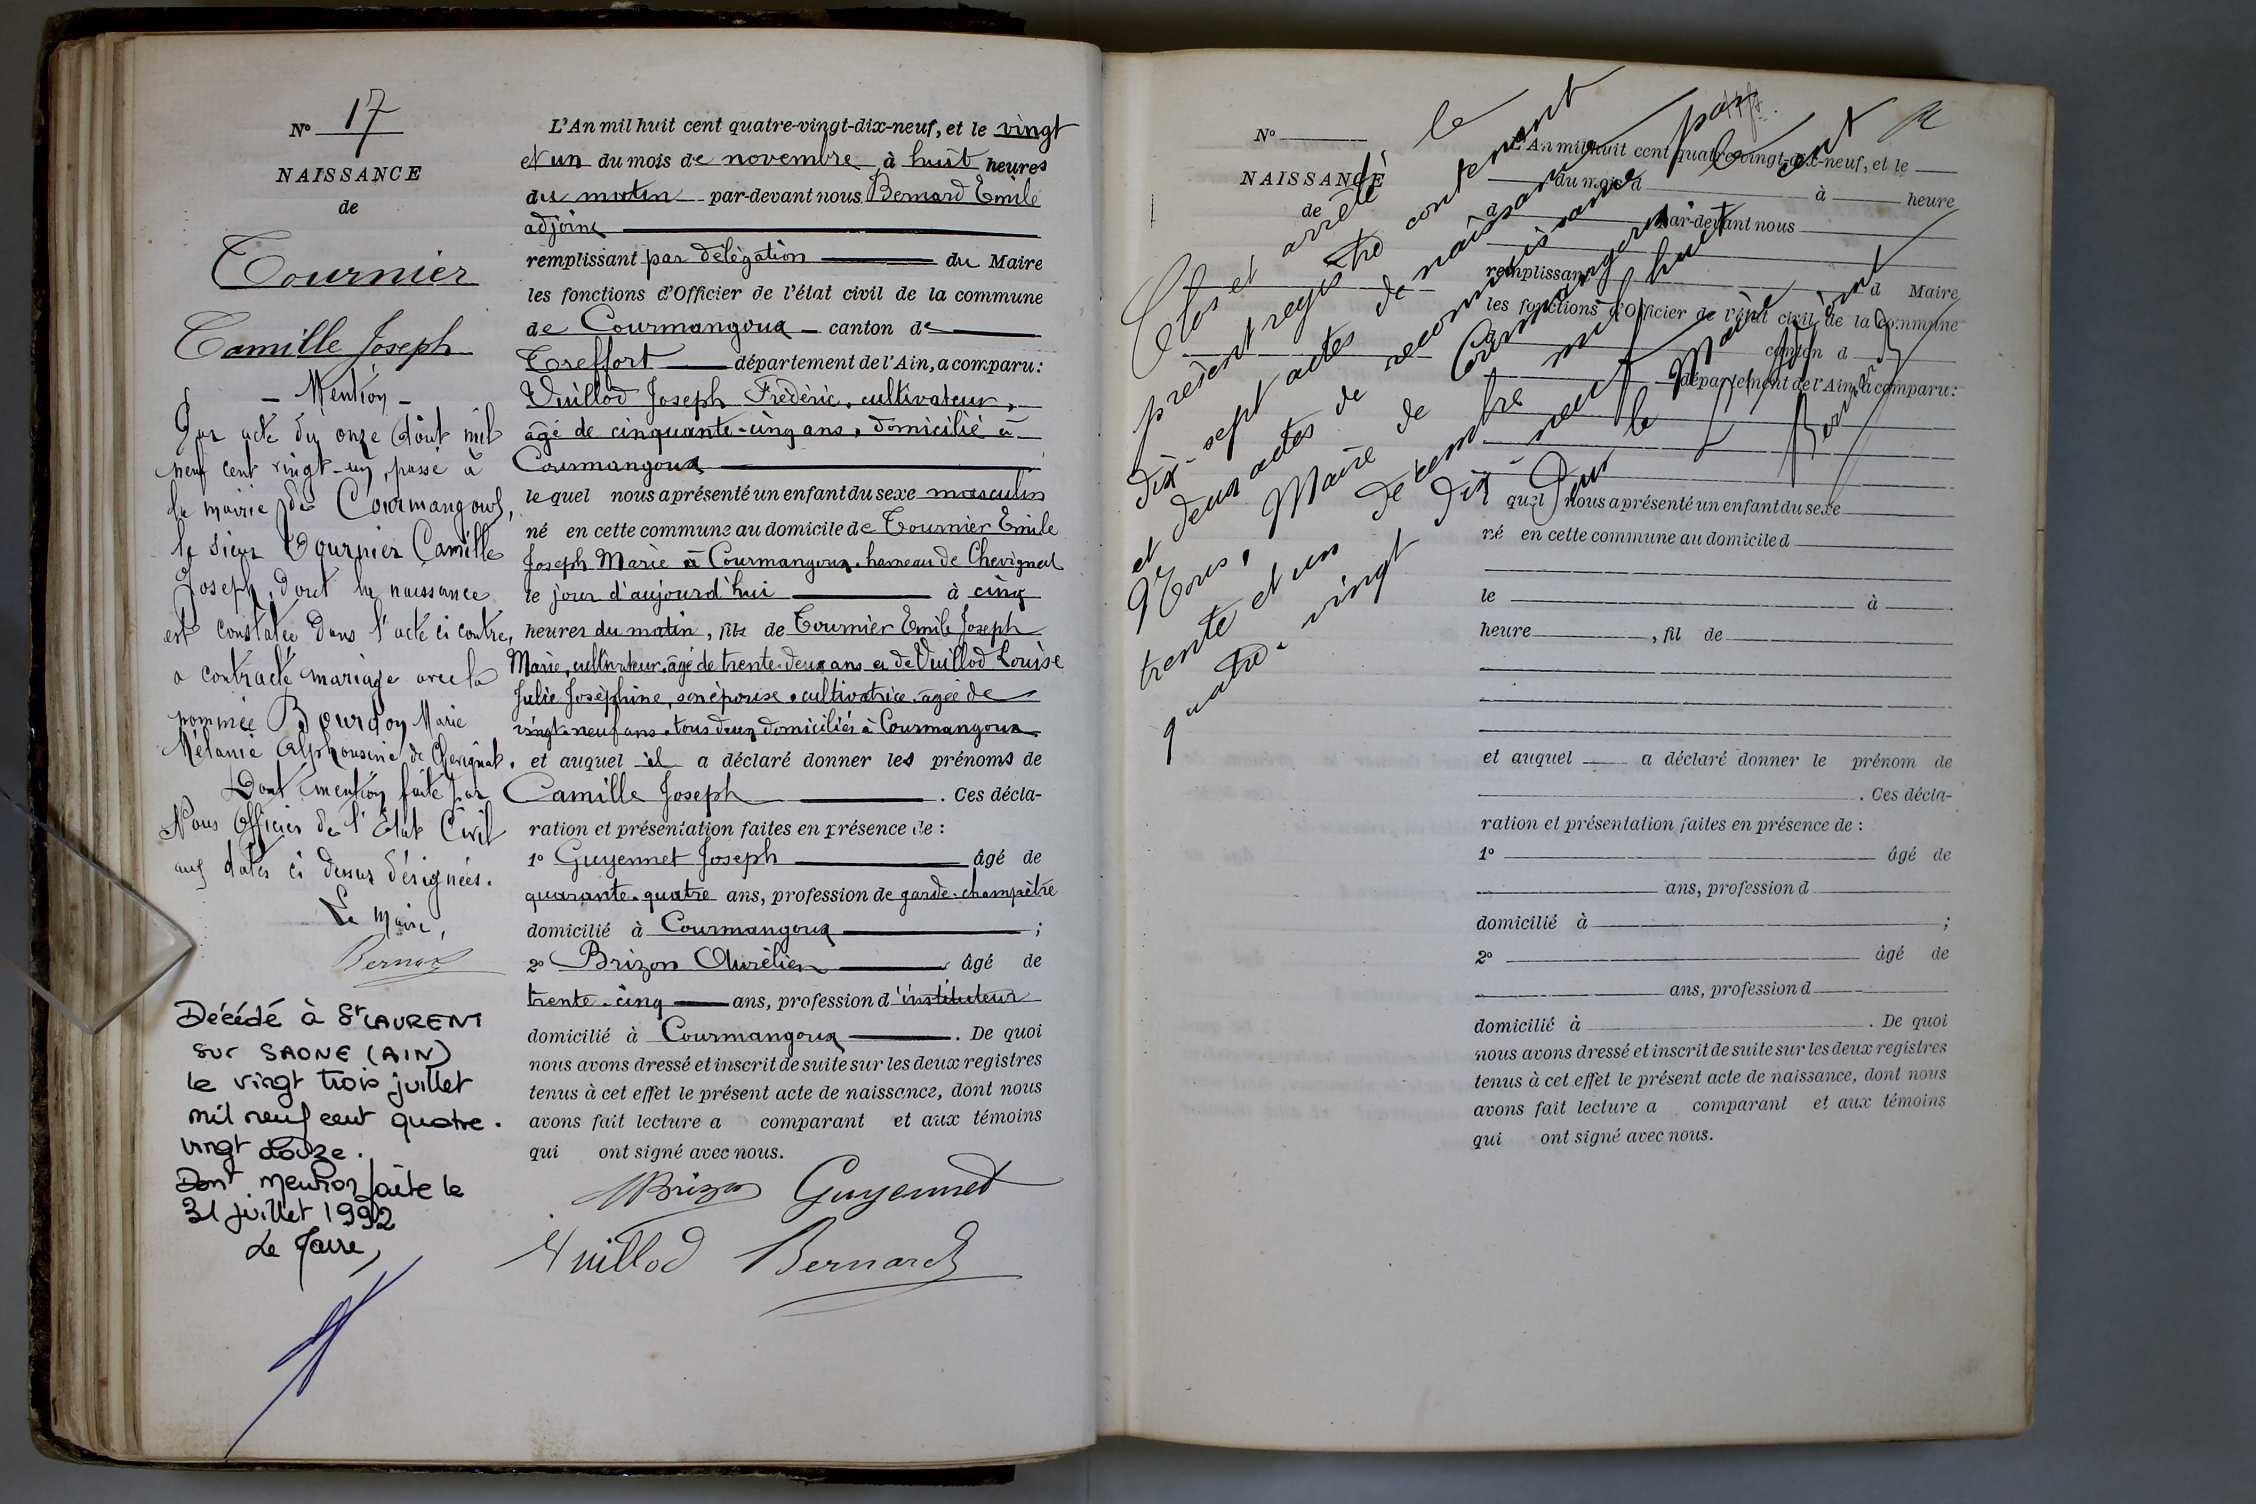 N° 17
NAISSANCE
de
Tournier
Camille Joseph
- Mention -
Par acte du onze Août mil
neuf cent vingt-un, passé à
la mairie de Courmangoux,
le sieur Tournier Camille
Joseph, dont la naissance
est constatée dans l'acte ci contre,
a contracté mariage avec la
nommée Bourdon Marie
Mélanie Alphonsine de Chevignat.
Dont mention faite par
Nous Officier de l'Etat Civil
aux dates ci dessus désignées.
Le Maire,
Bernard
Décédé à St LAURENT
sur SAONE (AIN)
le vingt trois juillet
mil neuf cent quatre.
vingt douze.
Dont mention faite le
31 juillet 1992
Le Maire,
L'An mil huit cent quatre-vingt-dix-neuf, et le vingt
et un du mois de novembre à huit heures
du matin par-devant nous Bernard Emile
adjoint
remplissant par délégation du Maire
les fonctions d'Officier de l'état civil de la commune
de Courmangoux canton de
Treffort département de l'Ain, a comparu:
Vuillod Joseph Frédéric, cultivateur,
âgé de cinquante-cinq ans, domicilié à
Courmangoux
lequel nous a présenté un enfant du sexe masculin
né en cette commune au domicile de Tournier Emile
Joseph Marie à Courmangoux, hameau de Chevignat
le jour d'aujourd'hui à cinq
heures du matin, fils de Tournier Emile Joseph
Marie, cultivateur, âgé de trente-deux ans et de Vuillod Louise
Julie Joséphine, son épouse, cultivatrice, âgée de
vingt-neuf ans, tous deux domiciliés à Courmangoux
et auquel il a déclaré donner les prénoms de
Camille Joseph . Ces décla-
ration et présentation faites en présence de :
1° Guyennet Joseph âgé de
quarante-quatre ans, profession de garde-champêtre
domicilié à Courmangoux ;
2° Brizon Aurélien, âgé de
trente-cinq ans, profession d'instituteur
domicilié à Courmangoux . De quoi
nous avons dressé et inscrit de suite sur les deux registres
tenus à cet effet le présent acte de naissance, dont nous
avons fait lecture a comparant et aux témoins
qui ont signé avec nous.
ABrizon Guyennet
Vuillod Bernard
Clos et arrêté le
présent registre contenant
dix-sept actes de naissance
et deux actes de reconnaissance par
Nous, Maire de Courmangoux le
trente et un décembre mil huit cent
quatre-vingt dix-neuf
Pour le Maire
L'Adjoint
Bernard
N°
NAISSANCE
de
L'An mil huit cent quatre-vingt-dix-neuf, et le
du mois d à heure
d par-devant nous
remplissant d Maire
les fonctions d'Officier de l'état civil de la commune
d canton d
département de l'Ain, a comparu:
quel nous a présenté un enfant du sexe
né en cette commune au domicile d
le à
heure , fil de
et auquel a déclaré donner le prénom de
. Ces décla-
ration et présentation faites en présence de :
1° âgé de
ans, profession d
domicilié à ;
2° âgé de
ans, profession d
domicilié à . De quoi
nous avons dressé et inscrit de suite sur les deux registres
tenus à cet effet le présent acte de naissance, dont nous
avons fait lecture a comparant et aux témoins
qui ont signé avec nous.